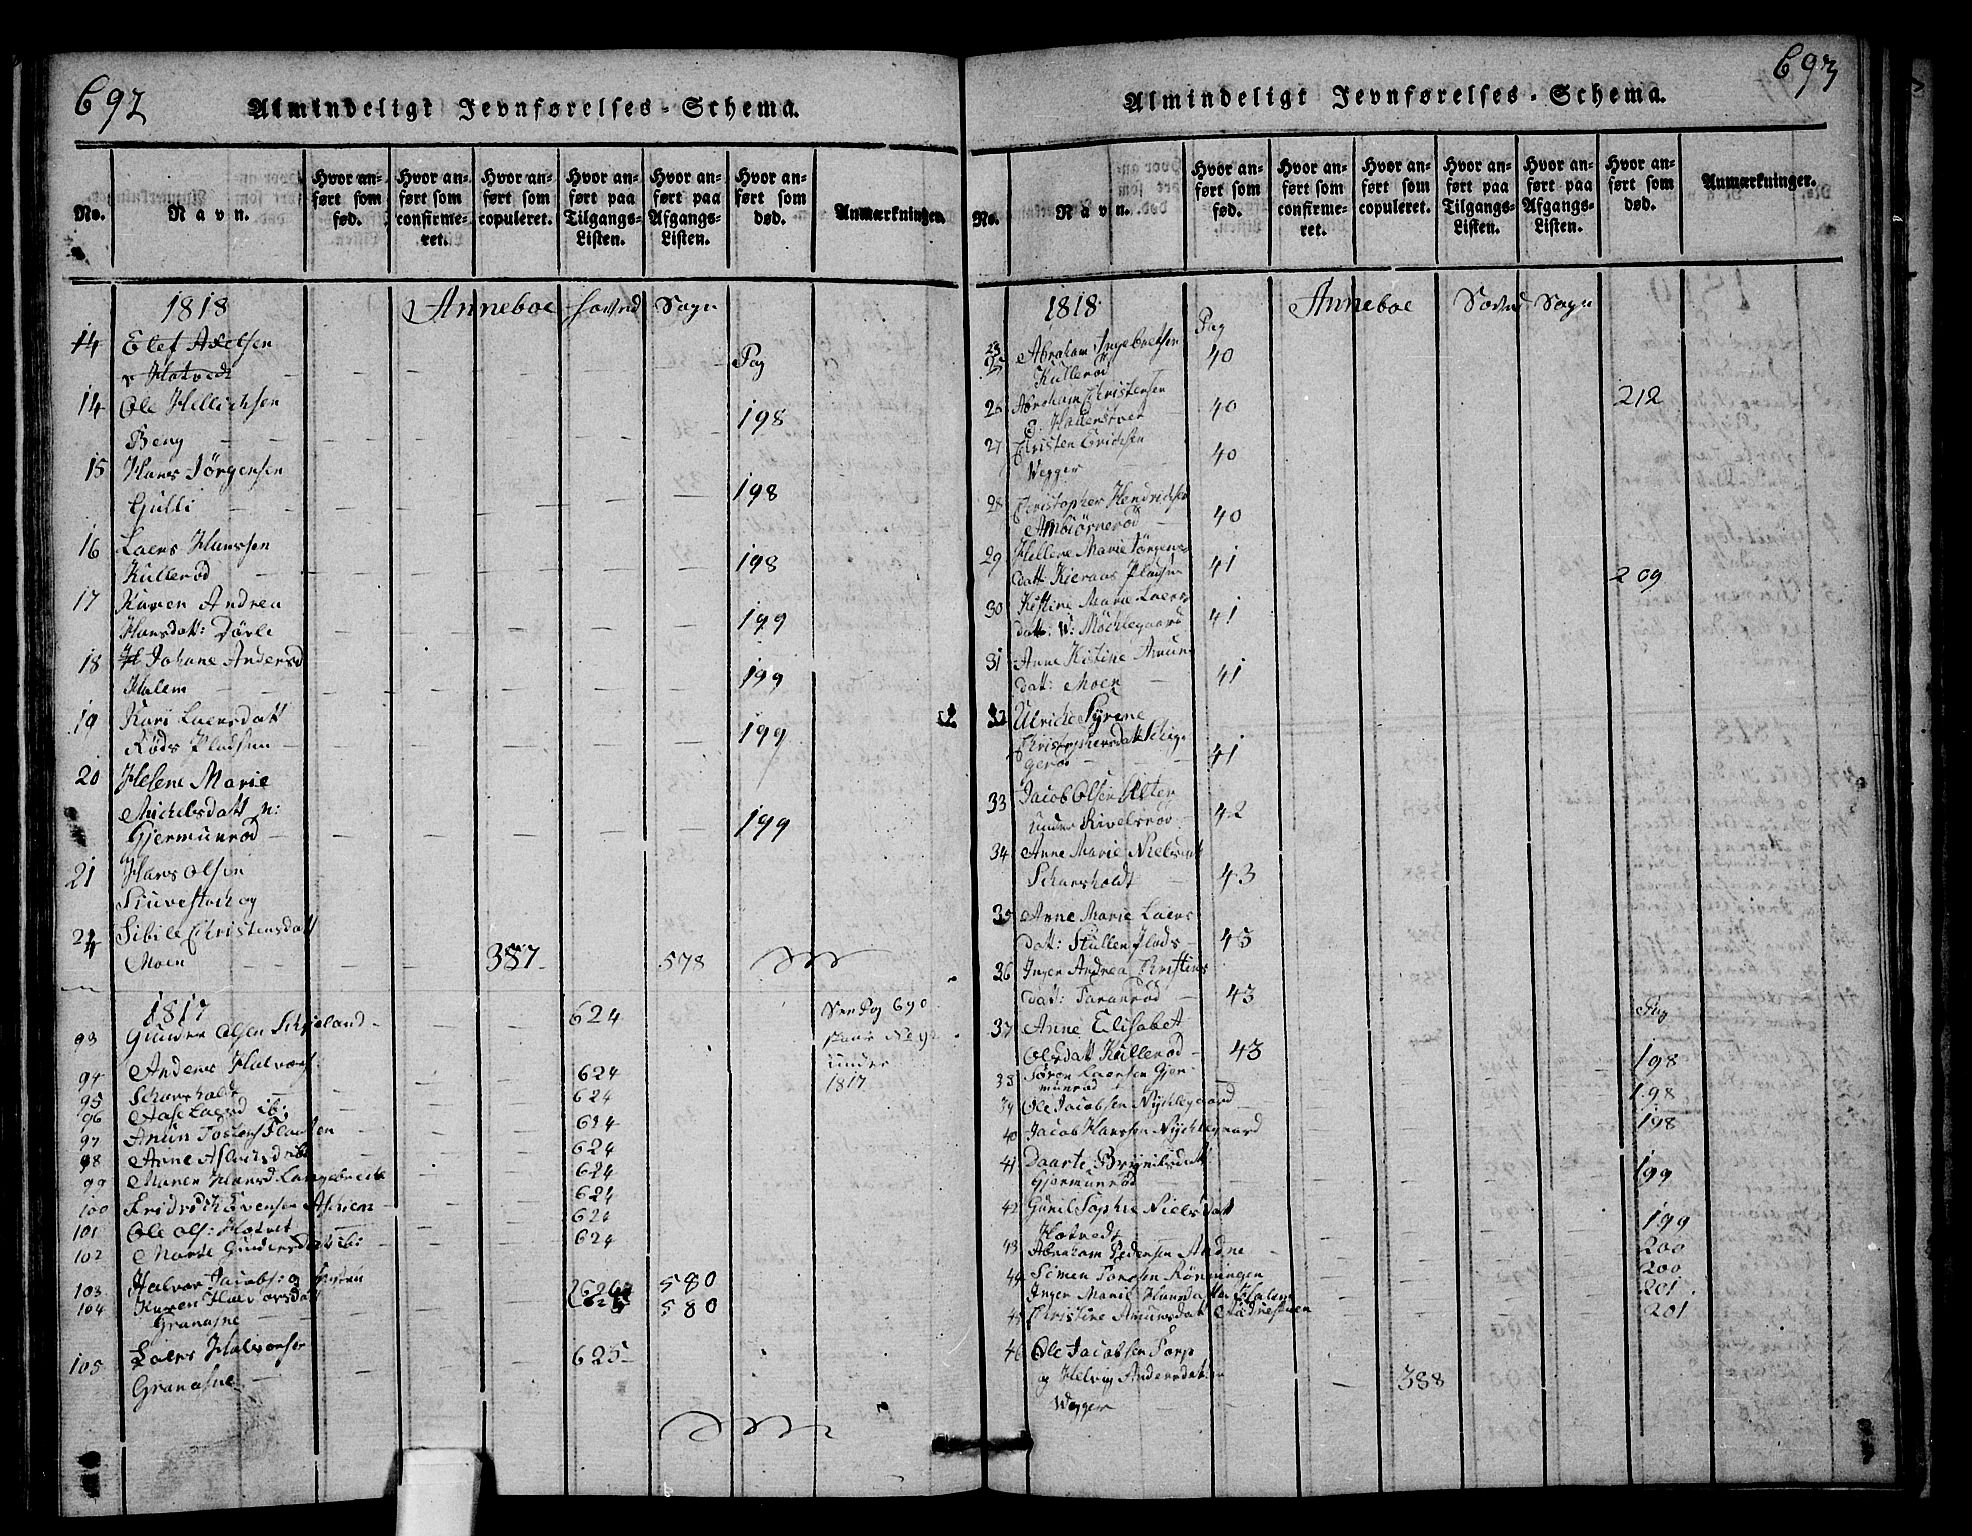 692
Almindeligt Jevnførelses-Schema.
No.
Navn.
Hvor an-
ført som
fød.
Hvor an-
ført som
confirme-
ret.
Hvor an-
ført som
copuleret.
Hvor an-
ført paa
Tilgangs-
Listen.
Hvor an-
ført paa
Afgangs-
Listen.
Hvor an-
ført som
død.
Anmærkninger.
1818 Anneboe Hoved Sogn
14 Elef Axelsen
Hotvedt Pag
14 Ole Hellichsen
Berg 198
15 Hans Jørgensen
Gulli 198
16 Laers Hanssen
Kullerød 198
17 Karen Andrea
Hansdatt: Dørle 199
18 Johane Andersd
Holem 199
19 Kari Laersdatt
Røds Pladsen 199
20 Helene Marie
Michelsdatt n:
Gjermunrød 199
21 Hans Olsen
Stuvestoch og
Sibile Christensdatt
Moen 387 578
1817
93 Gunder Olsen 624 See Pag 690
94 Anders Halvors 624 under
95 Schorsholdt 624 1817
96 Aase Laersd ib: 624
97 Anun Tostens Flaatten 624
98 Anne Aslachsd ib 624
99 Maren Hansd Langebrech 624
100 Fridrich Evensen Aschien 624
101 Ole Ols: Hotvet 624
102 Marte Gundersdatt ib:
103 Halvor Jacobs: og 580
104 Karen Halvorsdatt 580
Granasne
105 Laers Halvorsen 625
Granasne
693
Almindeligt Jevnførelses-Schema.
No.
Navn.
Hvor an-
ført som
fød.
Hvor an-
ført som
confirme-
ret.
Hvor an-
ført som
copuleret.
Hvor an-
ført paa
Tilgangs-
Listen.
Hvor an-
ført paa
Afgangs-
Listen.
Hvor an-
ført som
død.
Anmærkninger.
1818 Anneboe Hoved Sogn
Pag
25 Abraham Ingebretsen 40
Kullerød
26 Abraham Christensen 40 212
Ø. Hallenstvet
27 Christen Erichsen 40
Vegger
28 Christopher Hendrichsen
Ambiørnerød 40
29 Hellene Marie Jørgens
datt: Kieraas Pladsen 41 209
30 Kistine Marie Laers
datt: W: Møchlegaard 41
31 Anne Kistine Amun
datt: Moen 41
32 Ulriche Syrene
Christophersdatt Schig-
gerød 41
33 Jacob Olsen
under Rivelsrød 42
34 Anne Marie Nielsdatt
Schorsholdt 43
35 Anne Marie Laers
datt: Stullen Plads 43
36 Inger Andrea Christens
datt: Taranrød 43
37 Anne Elisabet Pag
Olsdatt Kullerød 43 198
38 Søren Laersen Gjer-
munrød 198
39 Ole Jacobsen Nychlegaard 198
40 Jacob Hanssen Nychlegaard
41 Daarte Brynilsdatt
Gjermunrød 199
42 Gunil Sophie Nielsdatt
Hotvedt 199
43 Abraham Pedersen 200
44 Simen Rønningen 200
Inger Marie Hansdatter Holem 201
45 Christine Amunsdatt 201
46 Ole Jacobsen Torp
og Helvig Andersdatter 388
Vegger